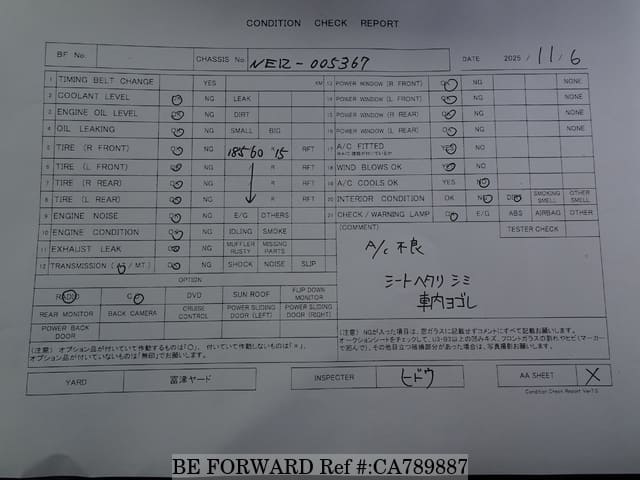 CONDITION CHECK REPORT
BF No. CHASSIS No NE12-005367 DATE 2025 / 11 / 6
1 TIMING BELT CHANGE YES KM
2 COOLANT LEVEL OK NG LEAK
3 ENGINE OIL LEVEL OK NG DIRT
4 OIL LEAKING OK NG SMALL BIG
5 TIRE (R FRONT) OK NG 185 60 R 15 RFT
6 TIRE (L FRONT) OK NG R RFT
7 TIRE (R REAR) OK NG R RFT
8 TIRE (L REAR) OK NG R RFT
9 ENGINE NOISE OK NG E/G OTHERS
10 ENGINE CONDITION OK NG IDLING SMOKE
11 EXHAUST LEAK OK NG MUFFLER RUSTY MISSING PARTS
12 TRANSMISSION (AT / MT) OK NG SHOCK NOISE SLIP
OPTION
RADIO CD DVD SUN ROOF FLIP DOWN MONITOR
REAR MONITOR BACK CAMERA CRUISE CONTROL POWER SLIDING DOOR (LEFT) POWER SLIDING DOOR (RIGHT)
POWER BACK DOOR
(注意) オプション品が付いていて作動するものは「〇」、付いていて作動しないものは「×」、
オプション品が付いていないものは「無印」でお願いします。
13 POWER WINDOW (R FRONT) OK NG NONE
14 POWER WINDOW (L FRONT) OK NG NONE
15 POWER WINDOW (R REAR) OK NG NONE
16 POWER WINDOW (L REAR) OK NG NONE
17 A/C FITTED YES NO
18 WIND BLOWS OK YES NO
19 A/C COOLS OK YES NO
20 INTERIOR CONDITION OK NG DIRT SMOKING SMELL OTHER SMELL
21 CHECK / WARNING LAMP OK E/G ABS AIRBAG OTHER
(COMMENT) TESTER CHECK
A/C 不良
シートヘタリ シミ
車内ヨゴレ
(注意) NGが入った項目は、窓ガラスに記載せずコメントにすべて記載お願いします。
オークションシートをチェックして、U3・B3以上の凹みキズ、フロントガラスの割れやヒビ(マーカー
で囲んで)、その他目立つ損傷部分があった場合は、写真撮影お願いします。
YARD 富津ヤード INSPECTER ヒドウ AA SHEET X
Condition Check Report Ver7.0
BE FORWARD Ref #:CA789887